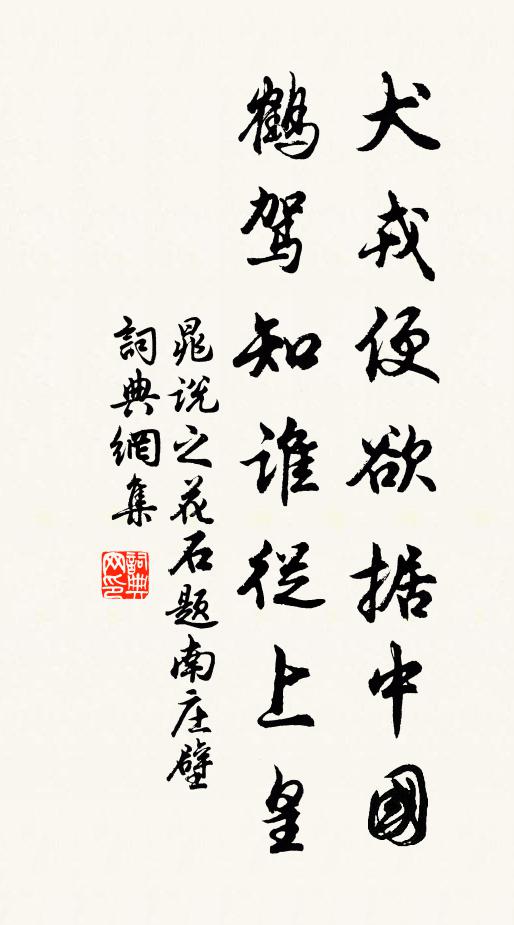 犬戎便欲据中國
鶴駕知誰從上皇
晁说之花石题南庄壁
詞典網集
詞典
网印